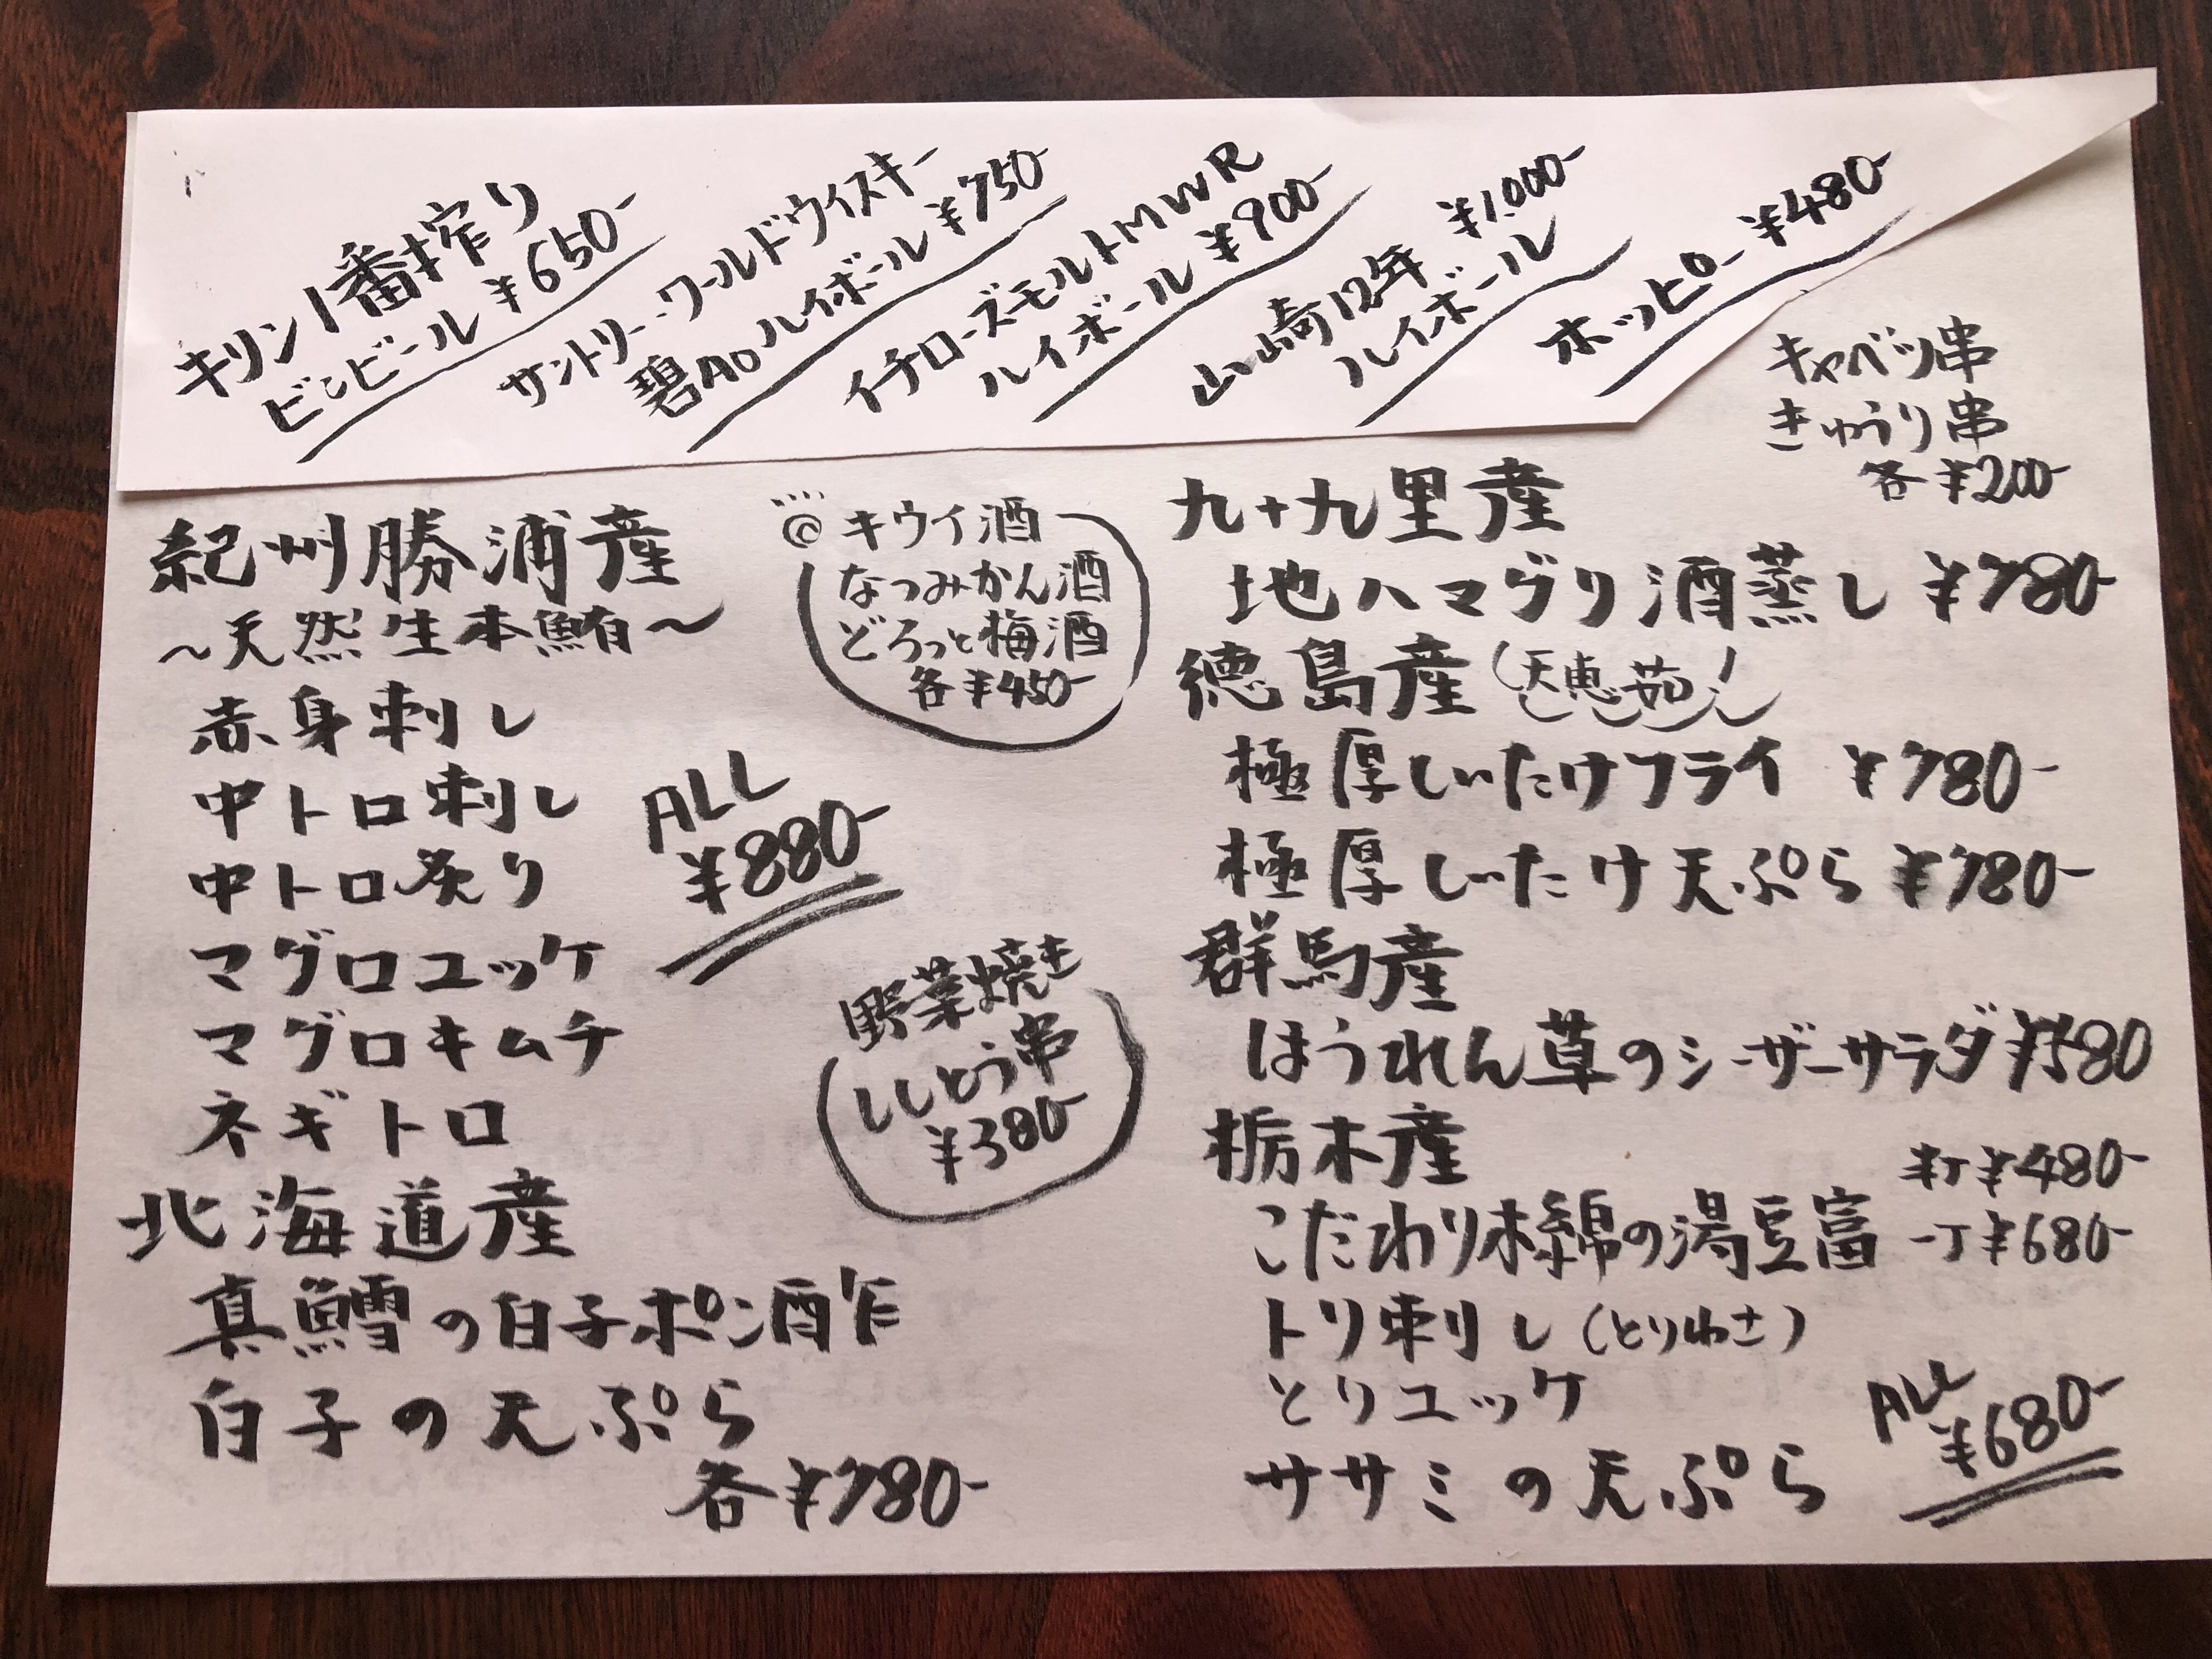 キリン1番搾り
ビンビール ¥650-
サントリー・ワールドウィスキー
碧Aoハイボール ¥750-
イチローズモルトMWR
ハイボール ¥900-
山崎12年 ¥1,000-
ハイボール
ホッピー ¥480-
キャベツ串
きゅうり串
各 ¥200-
紀州勝浦産
～天然生本鮪～
赤身刺し
中トロ刺し
中トロ炙り
マグロユッケ
マグロキムチ
ネギトロ
ALL
¥880-
北海道産
真鱈の白子ポン酢
白子の天ぷら
各 ¥780-
キウイ酒
なつみかん酒
どろっと梅酒
各 ¥450-
野菜焼き
ししとう串
¥380-
九十九里産
地ハマグリ酒蒸し ¥780-
徳島産 (天恵茹)
極厚しいたけフライ ¥780-
極厚しいたけ天ぷら ¥780-
群馬産
ほうれん草のシーザーサラダ ¥580
栃木産
こだわり木綿の湯豆富
¥480-
一丁 ¥680-
トリ刺し (とりわさ)
とりユッケ
ササミの天ぷら
ALL
¥680-